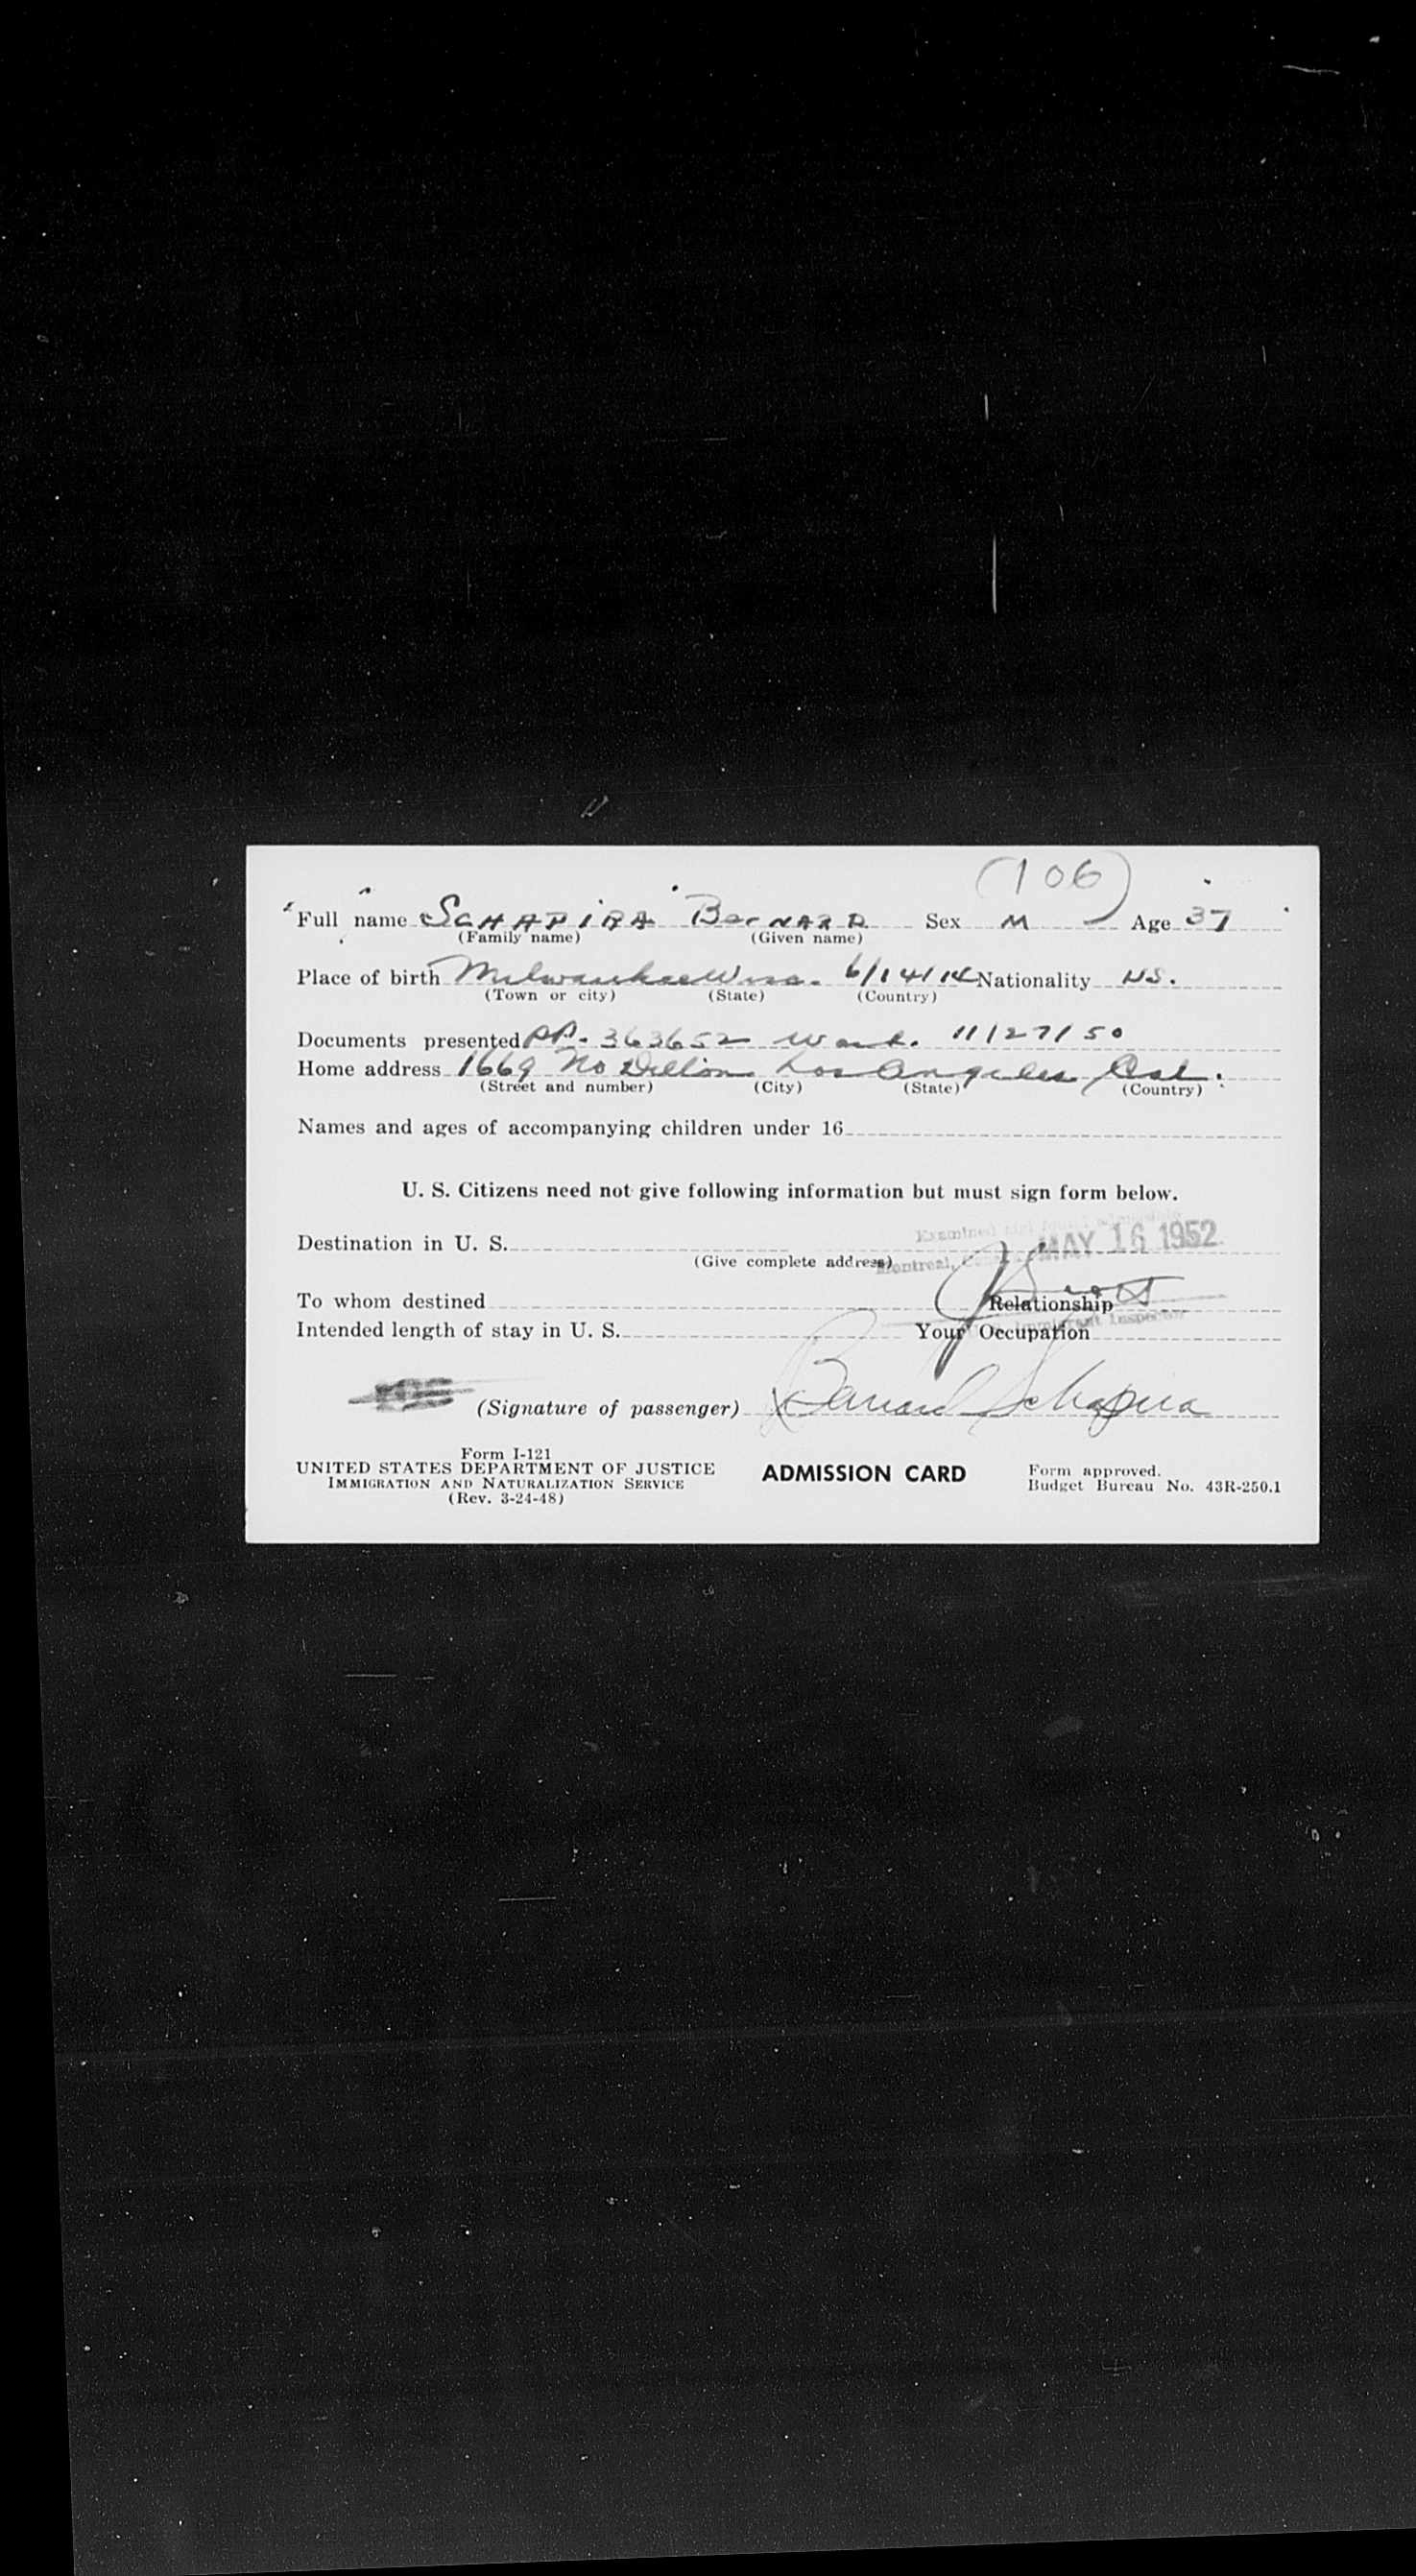 (106)
Full name SCHAPIRA BerNARD Sex M Age 37
(Family name) (Given name)
Place of birth Milwaukee Wisc. 6/14/14 Nationality US.
(Town or city) (State) (Country)
Documents presented PP. 363652 Wash. 11/27/50
Home address 1669 No Dillon Los Angeles Cal.
(Street and number) (City) (State) (Country)
Names and ages of accompanying children under 16
U. S. Citizens need not give following information but must sign form below.
Examined MAY 16 1952
Destination in U. S.
(Give complete address) Montreal,
To whom destined Relationship
Immigrant Inspector
Intended length of stay in U. S. Your Occupation
(Signature of passenger) X Bernard Schapira
Form I-121
UNITED STATES DEPARTMENT OF JUSTICE ADMISSION CARD Form approved.
IMMIGRATION AND NATURALIZATION SERVICE Budget Bureau No. 43R-250.1
(Rev. 3-24-48)